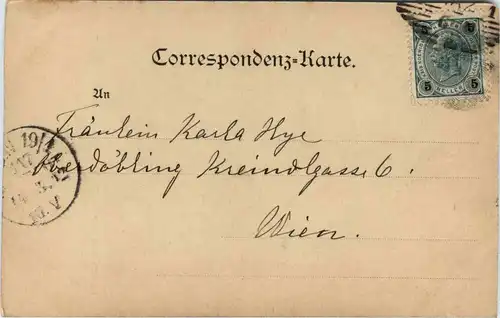 Correspondenz-Karte.
An
Fräulein Karla Hye
Oberdöbling Kreindlgasse 6.
Wien.
5 5
HELLER
19/1